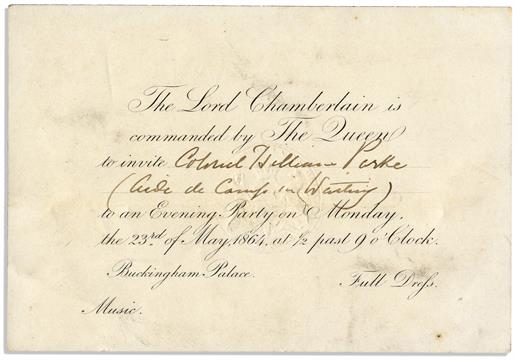 The Lord Chamberlain is
commanded by The Queen
to invite Colonel William Parke
(Aide de Camp in Waiting)
to an Evening Party on Monday,
the 23rd of May, 1864, at ½ past 9 o'Clock.
Buckingham Palace.
Full Dress.
Music.